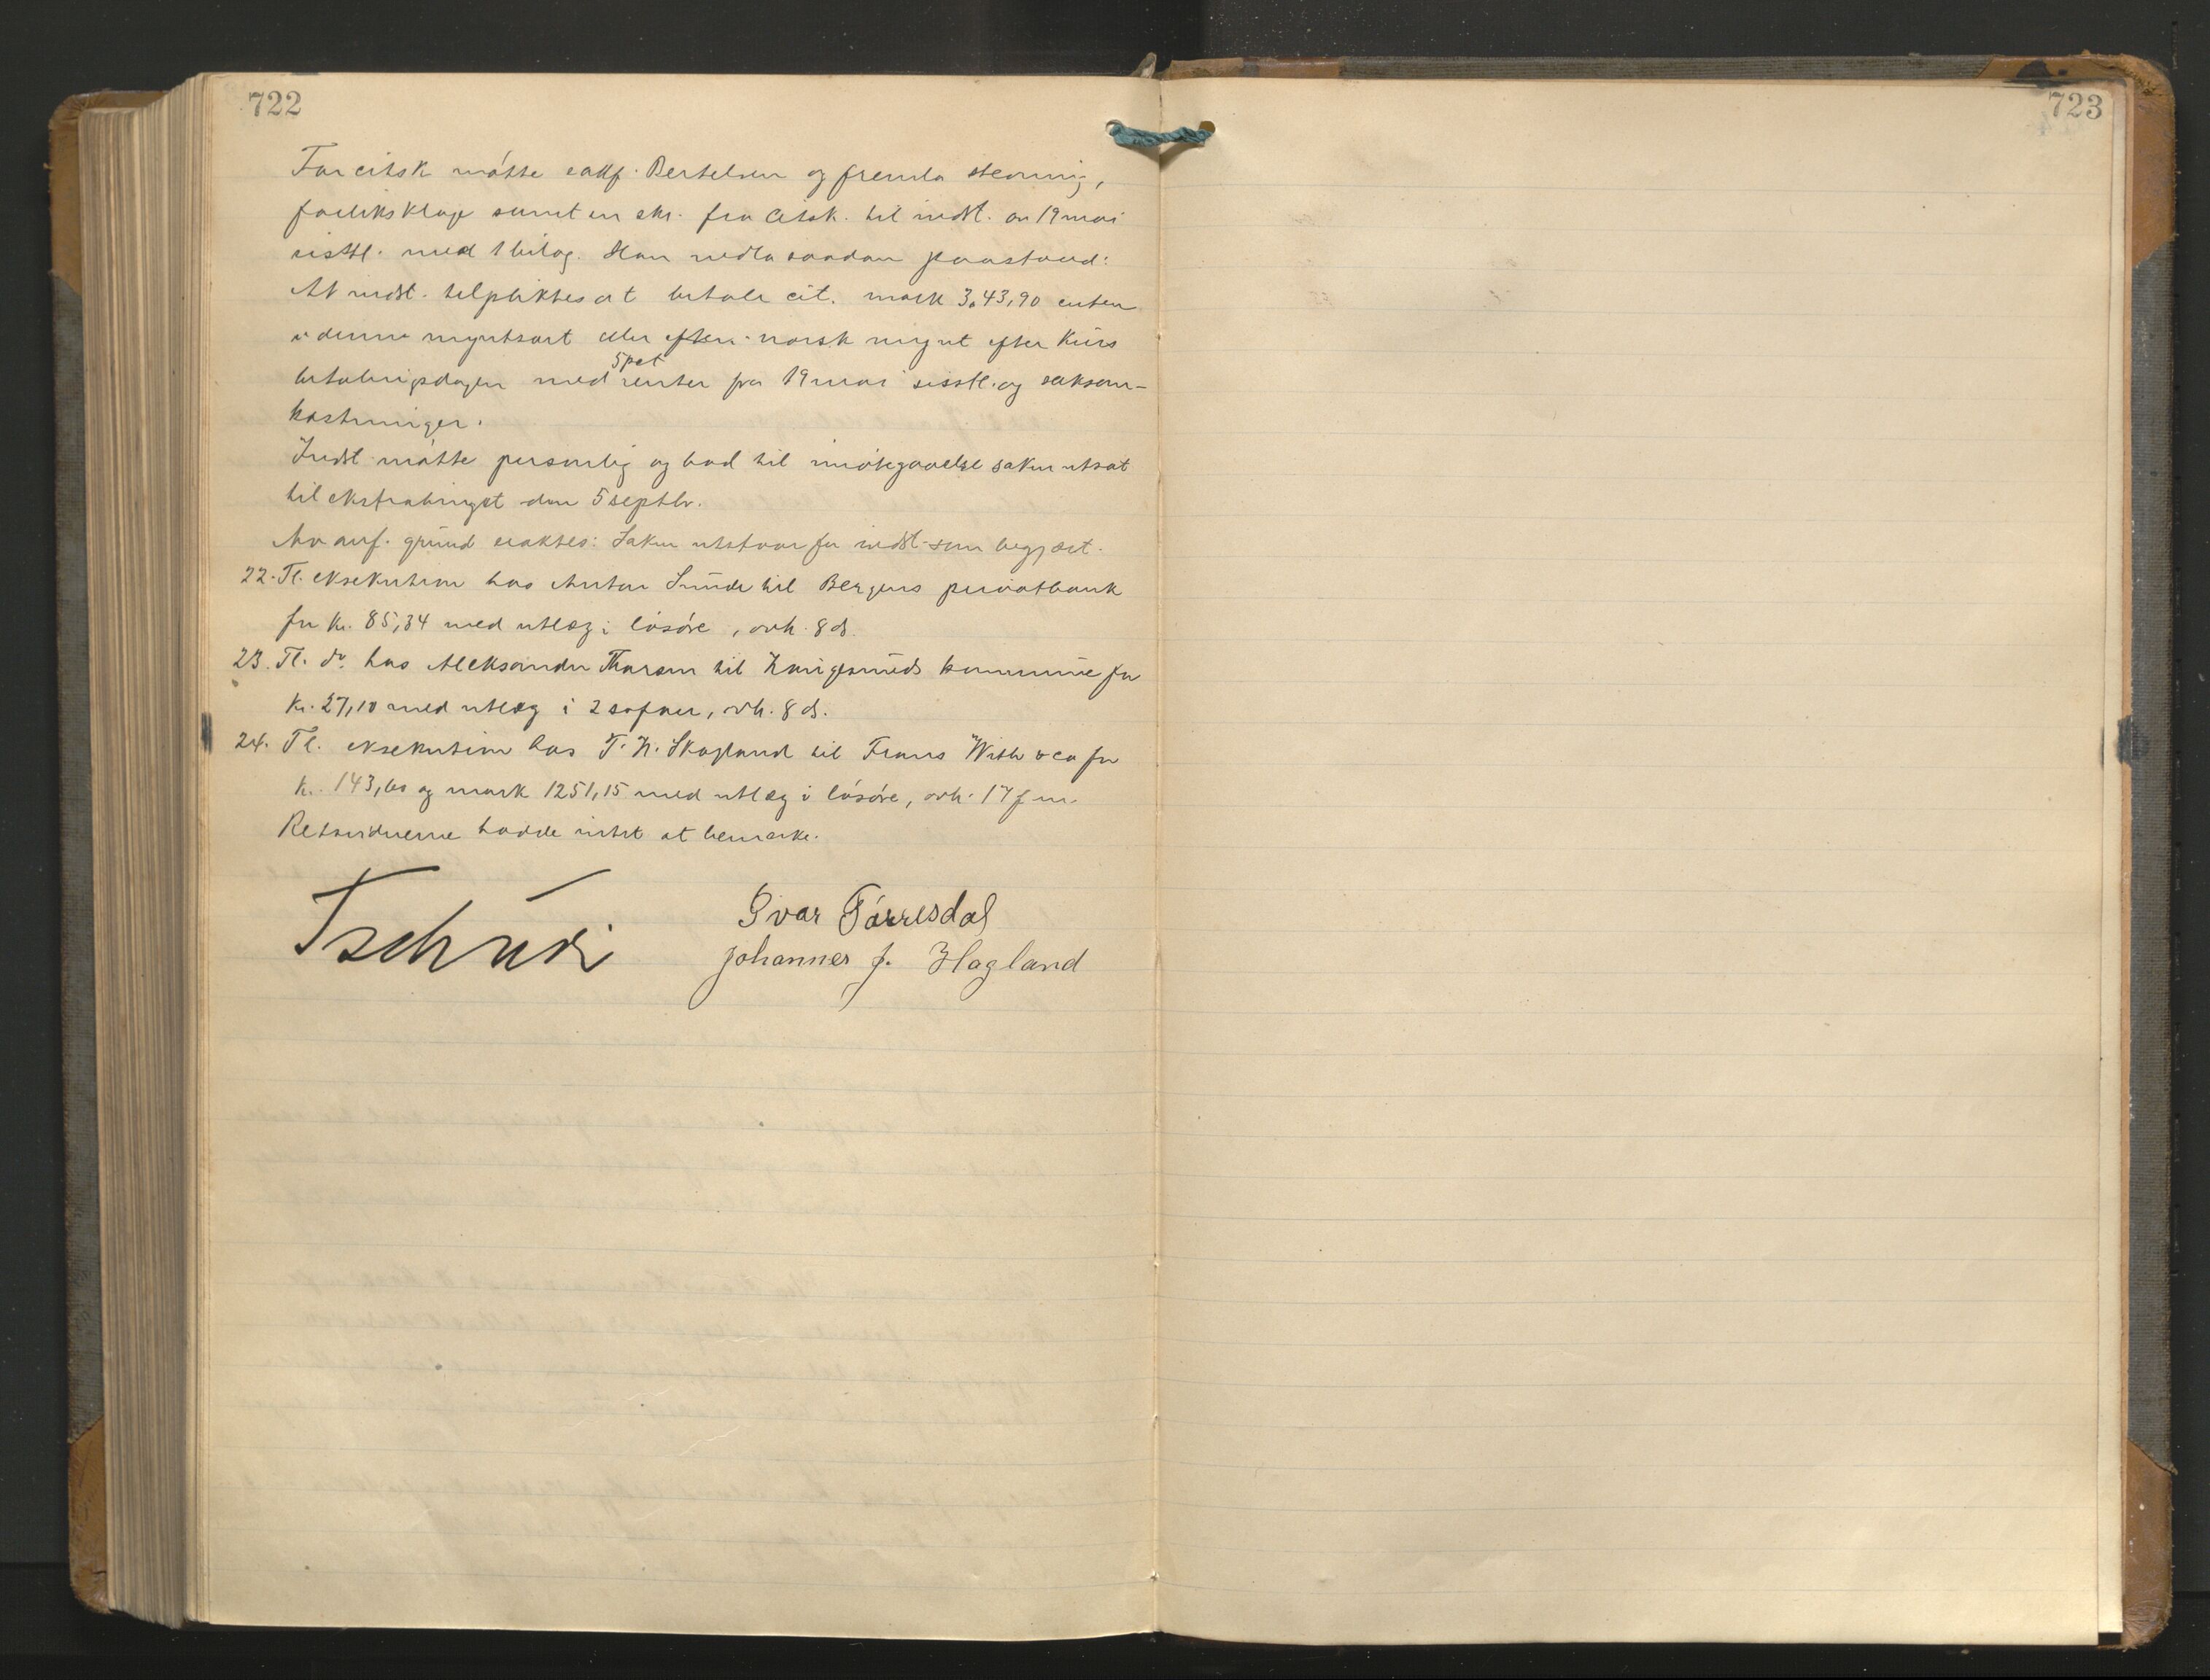 722
723
For citsk møtte sakf. Bertelsen og fremla stevning,
forliksklage samt en skr. fra citsk. til indst. av 19 mai
sisstl. med 1 bilag. Han nedla saadan paastand:
At indst. tilpliktes at betale cit. mark 3.43,90 enten
i denne myntsort eller efter norsk mynt efter kurs
betalingsdagen med 5 pct renter fra 19 mai sisstl. og saksom-
kostninger.
Indst møtte personlig og bad til imøtegaaelse saken utsat
til ekstratinget den 5 septbr.
Av anf. grund eraktes: Saken utstaar for indst. som begjært.
22. Tl. eksekution hos Anton Sunde til Bergens privatbank
for kr. 85,34 med utlæg i løsøre, avh. 8 ds.
23. Tl. do. hos Aleksander Thorsen til Haugesunds kommune for
kr. 27,10 med utlæg i 2 sofaer, avh. 8 ds.
24. Tl. eksekution hos T. H. Skogland til Frans With & co for
kr. 143,60 og mark 1251,15 med utlæg i løsøre, avh. 17 f. m.
Retsvidnerne hadde intet at bemærke.
Tschudi
Ivar Tørresdal
Johannes J. Hagland